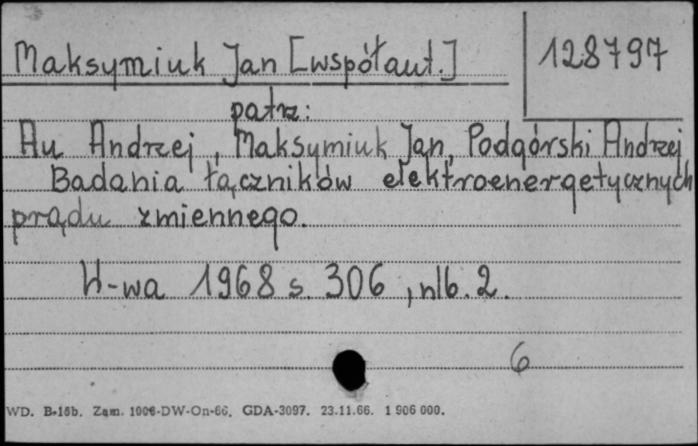 Maksymiuk Jan [współaut.]
128797
patrz:
Au Andrzej, Maksymiuk Jan, Podgórski Andrzej
Badania łączników elektroenergetycznych
prądu zmiennego.
W-wa 1968 s. 306, nlb. 2.
6
WD. B-16b. Zam. 1006-DW-On-66. GDA-3097. 23.11.66. 1 906 000.